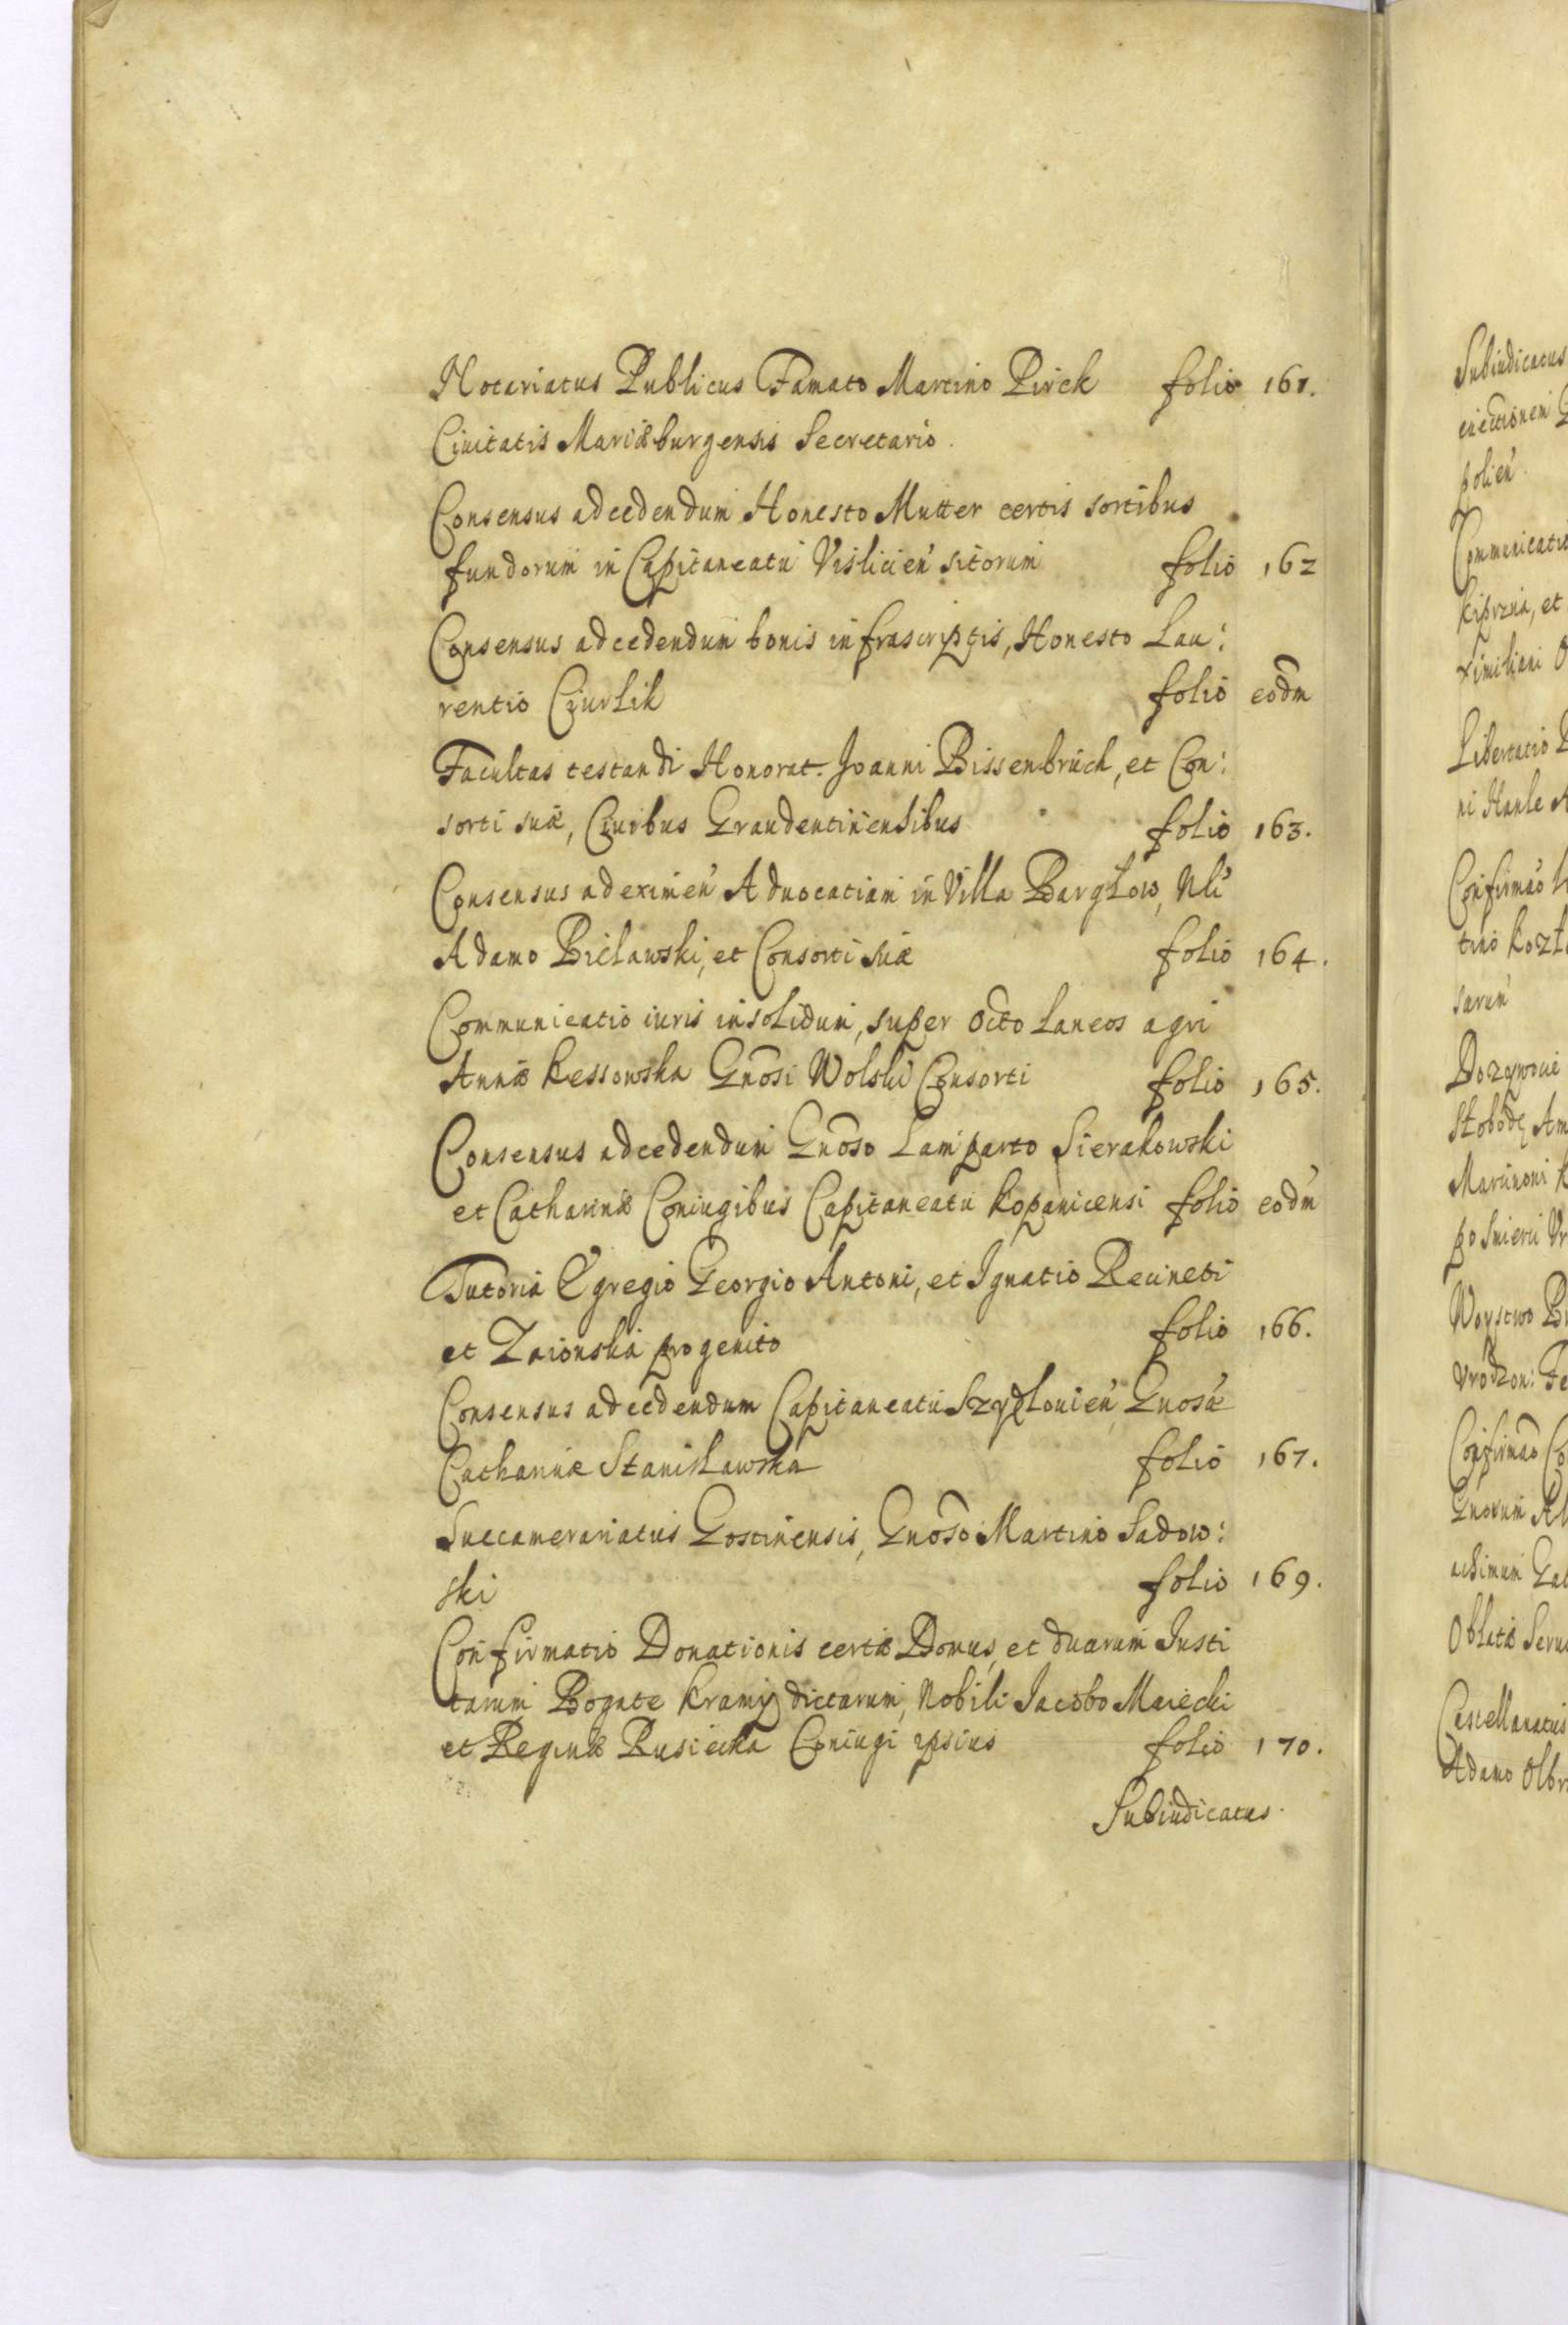 Notariatus Publicus Famato Martino Pirck folio 161.
Ciuitatis Mariæburgensis Secretario.
Consensus ad cedendum Honesto Mutter certis sortibus
fundorum in Capitaneatu Vislicien̄ sitorum folio 162
Consensus ad cedendum bonis infrascriptis, Honesto Lau:
rentio Ciurlik folio eodm
Facultas testandi Honorat. Joanni Bissenbruch, et Con:
sorti suæ, Ciuibus Graudentinensibus folio 163.
Consensus ad eximen̄ Aduocatiam in Villa Bargłow, Nli
Adamo Bielawski, et Consorti suæ folio 164.
Communicatio iuris insolidum, super octo laneos agri
Annæ Kessowska Gnosi Wolski Consorti folio 165.
Consensus ad cedendum Gnoso Lamparto Sierakowski
et Catharinæ Coniugibus Capitaneatu Kopanicensi folio eodm
Tutoria Egregio Georgio Antoni, et Ignatio
et progenito folio 166.
Consensus ad cedendum Capitaneatu Szydłouien̄, Gnosæ
Catharinæ Stanisławska folio 167.
Succamerariatus Gostinensis, Gnoso Martino Sadow:
ski folio 169.
Confirmatio Donationis certæ Domus, et duarum Insti
tarum Bogate Kramy dictarum, Nobili Jacobo Maiecki
et Reginæ Rusiecka Coniugi ipsius folio 170.
Subiudicatus.
Subiudicatus
polien̄
Communicatio
kiprzia, et
ximiliani
Libertatio
ni Hanle
Confirmao
tino Kozł
saren̄
Dozywocie
Słobodę Am
Marunoni K
po smierci Vr
Woystwo
vrodzon: Fe
Confirmao Co
Gnorum Al
achimum
Oblatæ Seru
Castellanatus
Adamo Olbr